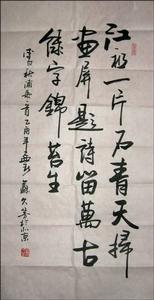 江祖一片石青天掃
畫屏題詩留萬古
綠字錦苔生